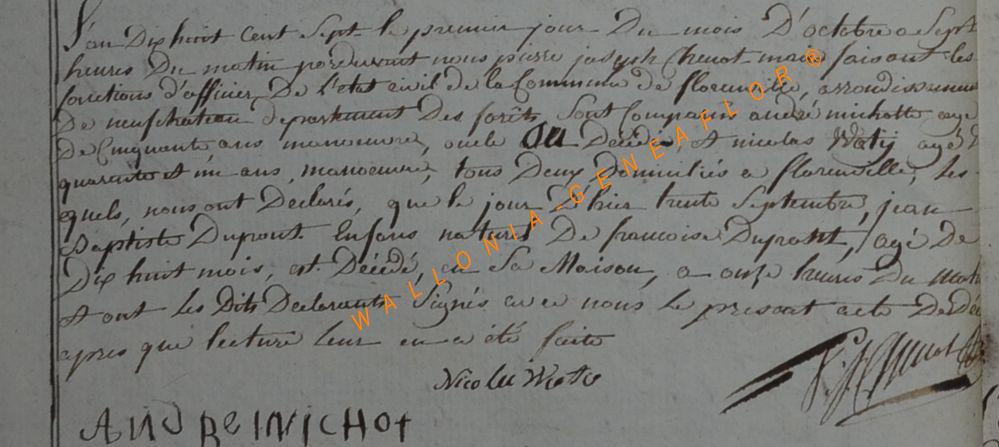 L'an Dix huit Cent Sept le premier jour Du mois D'octobre a Sept
heures Du matin pardevant nous pierre joseph maire faisant les
fonctions d'officier De l'état civil de la Commune de florenville, arrondissement
De neufchateau departement Des forêts, Sont Comparus andré michotte agé
De Cinquante ans manoeuvre, oncle au Décédé, et nicolas Watÿ agé
quarante et un ans, manoeuvre, tous Deux Domiciliés a florenville, les-
quels, nous ont Declarés, que le jour D'hier trente Septembre, jean
Baptiste Dupont Enfans naturel De francoise Dupont, agé De
Dix huit mois, est Décédé, en Sa Maison, a onze heures Du matin
et ont les Dits Declarants Signés avec nous le present acte De décé
apres que lecture leur en a été faite
Nicolas
ANDRE MICHOT
WALLONIA-GENEAFLOR®